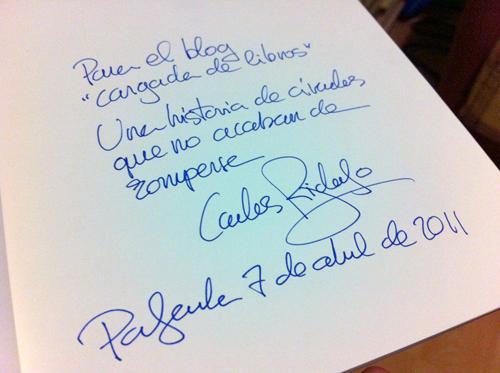 Para el blog
"Cargada de libros"
Una historia de
que no acaban de
romperse
Carlos
7 de abril de 2011